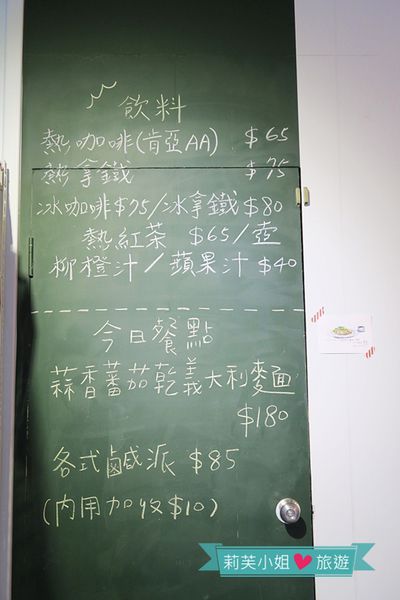 飲料
熱咖啡(肯亞AA) $65
熱拿鐵 $75
冰咖啡$75/冰拿鐵$80
熱紅茶 $65/壺
柳橙汁/蘋果汁 $40
今日餐點
蒜香蕃茄乾義大利麵
$180
各式鹹派 $85
(內用加收$10)
莉芙小姐❤旅遊